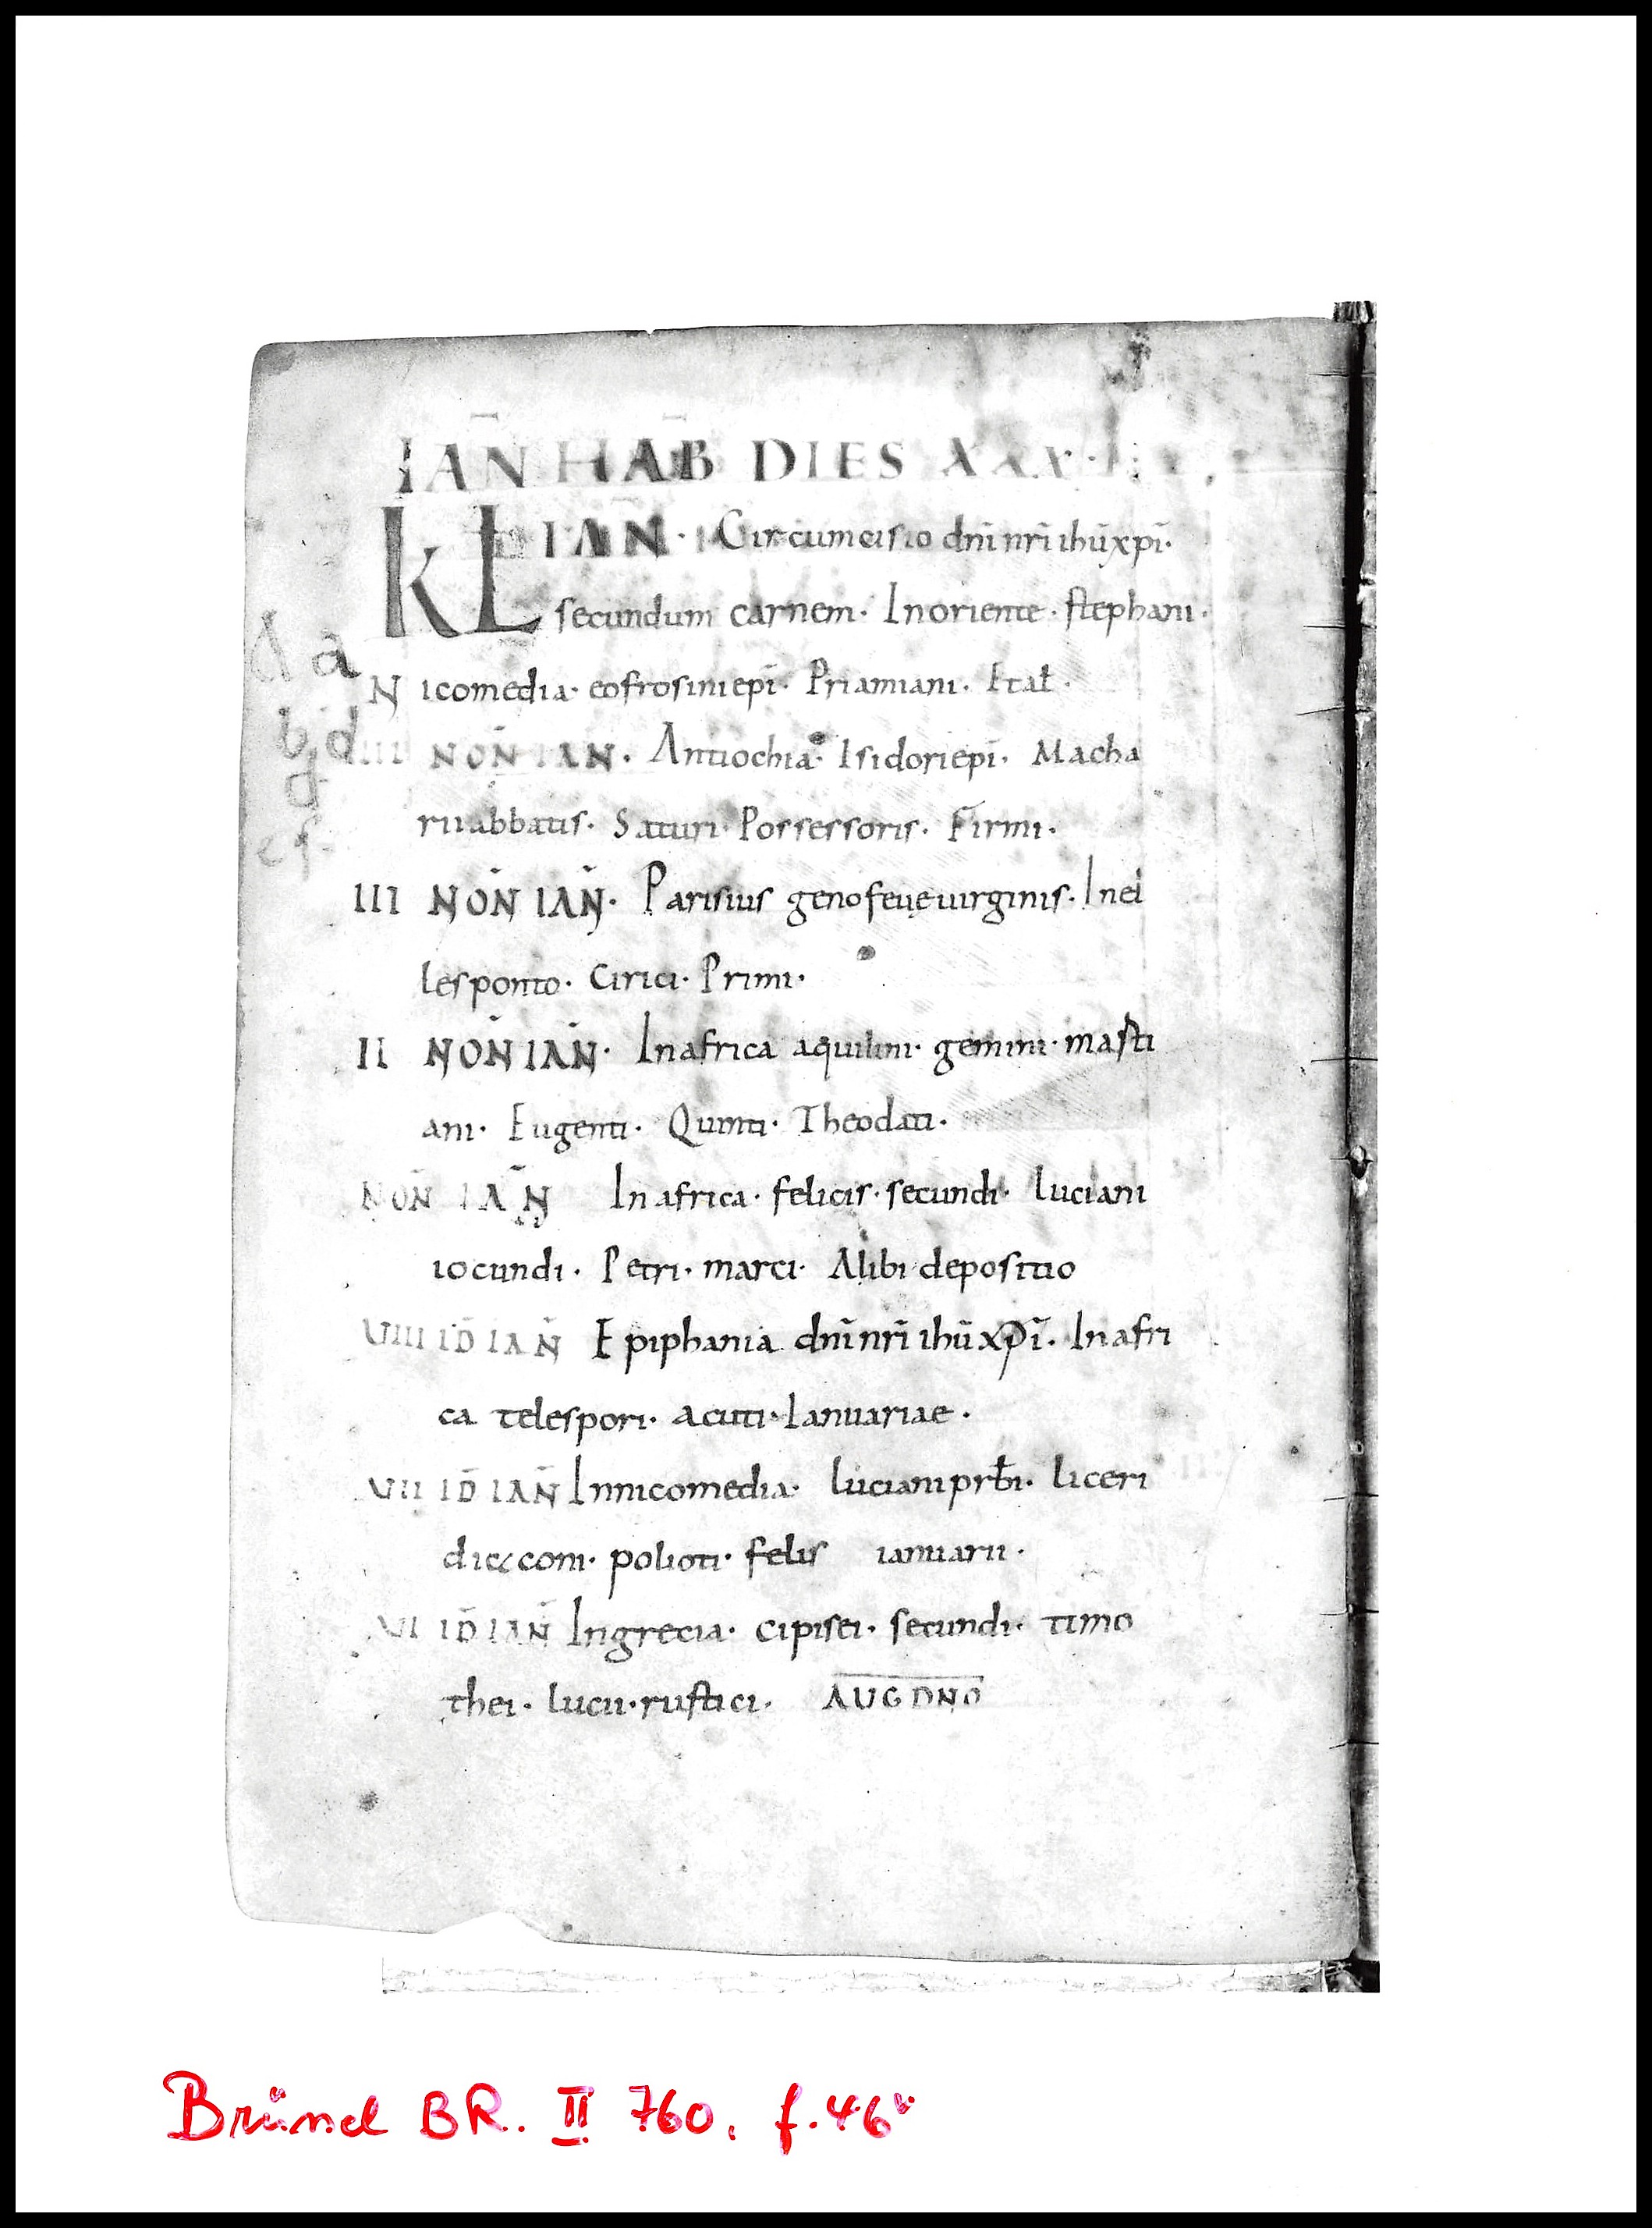 IAN̄ HAB̄ DIES XXX·I
KŁ IAN· Circumcisio dn̄i nr̄i ihū xp̄i·
secundum carnem· In oriente· stephani·
Nicomedia· eofrosini ep̄i· Priamiani· Et aƚ·
IIII NON̄ IAN· Antiochia· Isidori ep̄i· Macha
rii abbatis· Saturi· Possessoris· Firmi·
III NON̄ IAN̄· Parisius genofeuę uirginis· In el
lesponto· Cirici· Primi·
II NON̄ IAN̄· In africa aquilini· gemini· masti
ani· Eugenti· Quinti· Theodati·
NON̄ IAN̄ In africa· felicis· secundi· luciani
iocundi· Petri· marci· Alibi depositio
VIII ID̄ IAN̄ Epiphania dn̄i nr̄i ihū xp̄i· In afri
ca telespori· acuti· Ianuariae·
VII ID̄ IAN̄ In nicomedia· luciani prb̄i· liceri
diaconi· polioti· felis ianuarii·
VI ID̄ IAN̄ In grecia· cipisei· secundi· timo
thei· lucii· rustici· AUG DNO
a
b d
d
e f
Brüssel BR. II 760, f. 46v